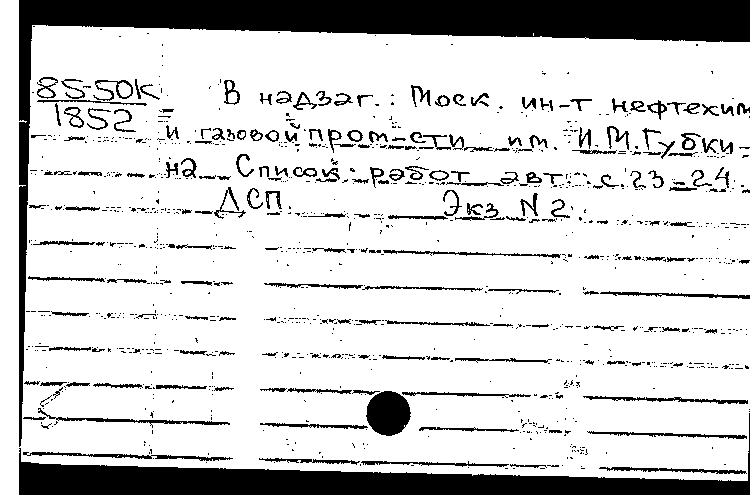 85-50к
1852
В надзаг.: Моск. ин-т нефтехим
и газовой пром-сти им. И.М.Губки-
на Список работ авт. с.23-24.
ДСП. Экз N 2.